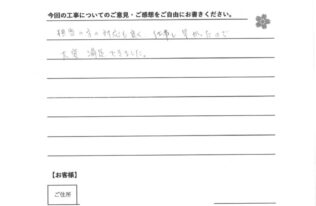 今回の工事についてのご意見・ご感想をご自由にお書きください。
担当の方の対応も良く、仕事も早かったので
大変満足できました。
【お客様】
ご住所